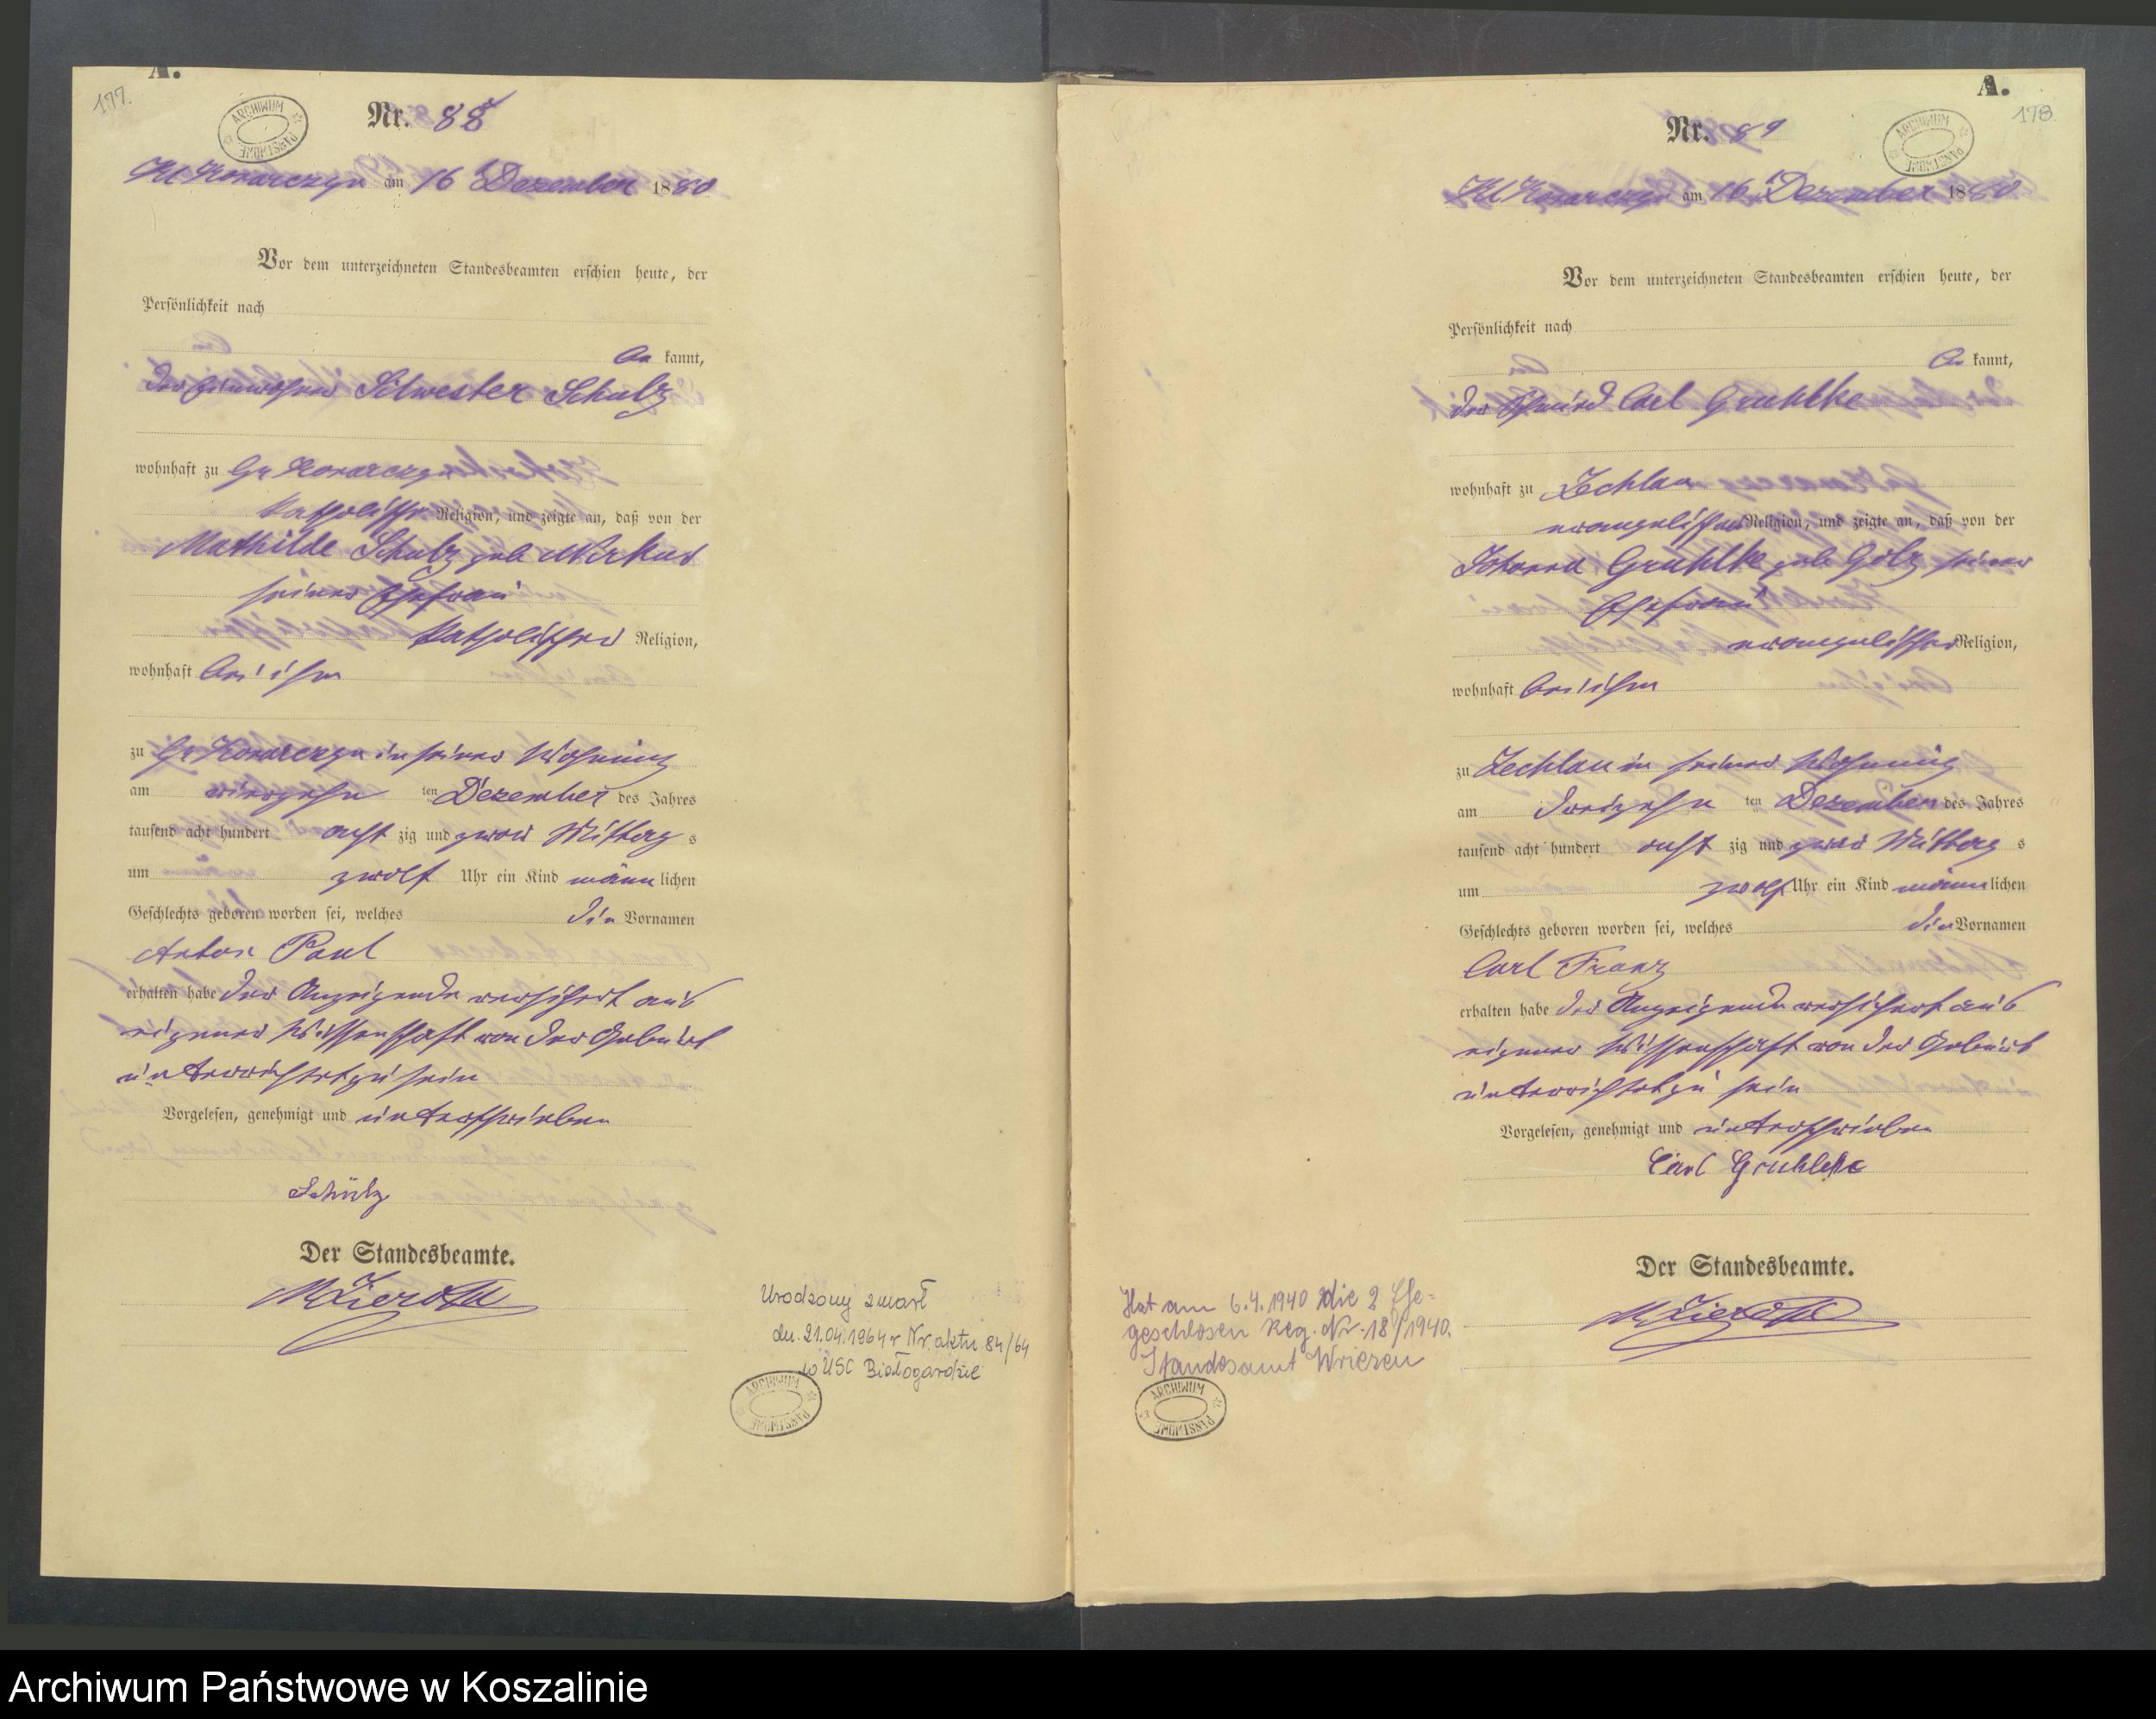 A.
177.
ARCHIWUM PAŃSTWOWE
Nr. 88
Kl Konarczyn am 16 Dezember 1880
Vor dem unterzeichneten Standesbeamten erschien heute, der
Persönlichkeit nach
be kannt,
der Einwohner Silwester Schulz
wohnhaft zu Gr Konarczyn
katholischer Religion, und zeigte an, daß von der
Mathilde Schulz geb
seiner Ehefrau
katholischer Religion,
wohnhaft bei ihm
zu Gr Konarczyn in seiner Wohnung
am vierzehn ten Dezember des Jahres
tausend acht hundert acht zig und zwar Mittag s
um zwölf Uhr ein Kind männ lichen
Geschlechts geboren worden sei, welches die Vornamen
Anton Paul
erhalten habe der Anzeigende versichert aus
eigener Wissenschaft von der Geburt
unterrichtet zu sein
Vorgelesen, genehmigt und unterschrieben
Schülz
Der Standesbeamte.
Urodzony zmarł
dn. 21.04.1964 r Nr aktu 84/64
w USC Białogardzie
ARCHIWUM PAŃSTWOWE
A.
178.
ARCHIWUM PAŃSTWOWE
Nr. 89
Kl Konarczyn am 16 Dezember 1880
Vor dem unterzeichneten Standesbeamten erschien heute, der
Persönlichkeit nach
be kannt,
der Schmied Carl Gruhlke
wohnhaft zu Zechlau
evangelischer Religion, und zeigte an, daß von der
Johanna Gruhlke geb Golz seiner
Ehefrau
evangelischer Religion,
wohnhaft bei ihm
zu Zechlau in seiner Wohnung
am dreizehn ten Dezember des Jahres
tausend acht hundert acht zig und zwar Mittag s
um zwölf Uhr ein Kind männ lichen
Geschlechts geboren worden sei, welches die Vornamen
Carl Franz
erhalten habe der Anzeigende versichert aus
eigener Wissenschaft von der Geburt
unterrichtet zu sein
Vorgelesen, genehmigt und unterschrieben
Carl Gruhlke
Der Standesbeamte.
Hat am 6.4.1940 die 2 Ehe-
geschlosen Reg. Nr. 18/1940.
Standesamt Wriezen
ARCHIWUM PAŃSTWOWE
Archiwum Państwowe w Koszalinie